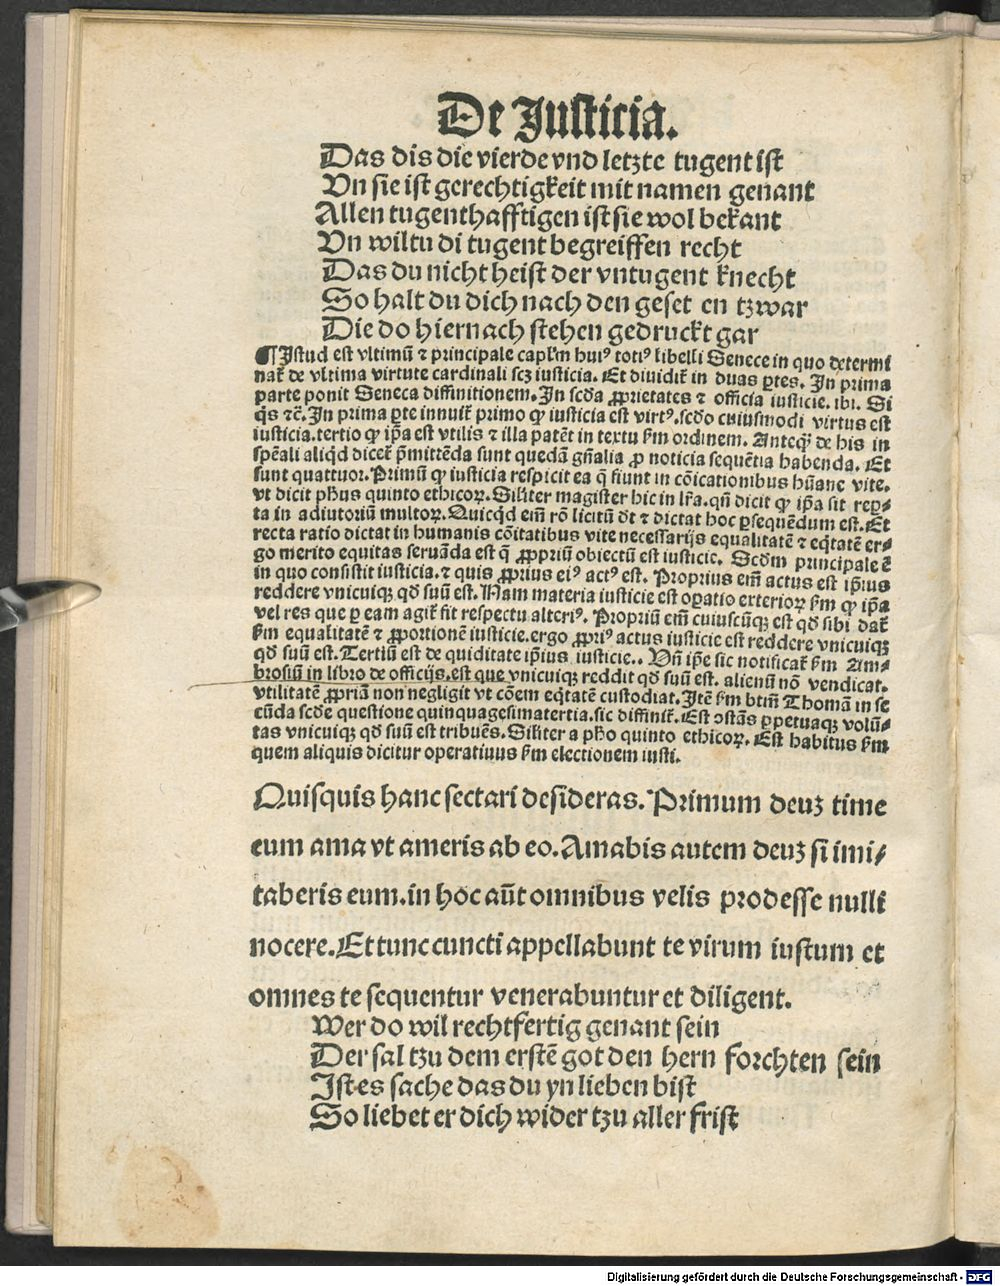 De Justicia.
Das dis die vierde vnd letzte tugent ist
Vn sie ist gerechtigkeit mit namen genant
Allen tugenthafftigen ist sie wol bekant
Vn wiltu di tugent begreiffen recht
Das du nicht heist der vntugent knecht
So halt du dich nach den geset en tzwar
Die do hiernach stehen gedruckt gar
¶ Istud est vltimū ⁊ principale capl'm huiꝰ totiꝰ libelli Senece in quo determi
nat᷑ de vltima virtute cardinali scꝫ iusticia. Et diuidit᷑ in duas ꝑtes. In prima
parte ponit Seneca diffinitionem. In scd̓a ꝓprietates ⁊ officia iusticie. ibi. Si
q̄s ⁊c̄. In prima ꝑte innuit᷑ primo ꝙ iusticia est virtꝰ. scd̓o cuiusmodi virtus est
iusticia. tertio ꝙ ip̄a est vtilis ⁊ illa patēt in textu ẜm ordinem. Anteq̄ꝫ de his in
sp̄eali aliq̄d dicet᷑ p̄mittēda sunt quedā gn̄alia ꝓ noticia sequētia habenda. Et
sunt quattuor. Primū ꝙ iusticia respicit ea q̄ fiunt in cōicationibus hūane vite.
vt dicit ph̄us quinto ethicoꝝ. Sil'iter magister hic in lr̄a. qn̄ dicit ꝙ ip̄a sit reꝑ⸗
ta in adiutoriū multoꝝ. Quicq̄d em̄ rō licitū d̓t ⁊ dictat hoc ꝑsequēdum est. Et
recta ratio dictat in humanis cōitatibus vite necessarijs equalitatē ⁊ eq̄tatē er⸗
go merito equitas seruāda est q̄ ꝓpriū obiectū est iusticie. Scd̓m principale ē
in quo consistit iusticia. ⁊ quis ꝓprius eiꝰ actꝰ est. Proprius em̄ actus est ip̄ius
reddere vnicuiqꝫ qd̓ suū est. Nam materia iusticie est oꝑatio exterioꝝ ẜm ꝙ ip̄a
vel res que ꝑ eam agit᷑ fit respectu alteriꝰ. Propriū em̄ cuiuscūqꝫ est qd̓ sibi dat᷑
ẜm equalitatē ⁊ ꝓportionē iusticie. ergo ꝓpriꝰ actus iusticie est reddere vnicuiqꝫ
qd̓ suū est. Tertiū est de quiditate ip̄ius iusticie.. Vn̄ ip̄e sic notificat᷑ ẜm Am⸗
brosiū in libro de officijs. est que vnicuiqꝫ reddit qd̓ suū est. alienū nō vendicat.
vtilitatē ꝓpriā non negligit vt cōem eq̄tatē custodiat. Itē ẜm btm̄ Thomā in se
cūda scd̓e questione quinquagesimatertia. sic diffinit᷑. Est ↄstās ꝑpetuaqꝫ volū⸗
tas vnicuiqꝫ qd̓ suū est tribuēs. Sil'iter a ph̄o quinto ethicoꝝ. Est habitus ẜm
quem aliquis dicitur operatiuus ẜm electionem iusti.
Quisquis hanc sectari desideras. Primum deuꝫ time
eum ama vt ameris ab eo. Amabis autem deuꝫ si imi⸗
taberis eum. in hoc aūt omnibus velis prodesse nulli
nocere. Et tunc cuncti appellabunt te virum iustum et
omnes te sequentur venerabuntur et diligent.
Wer do wil rechtfertig genant sein
Der sal tzu dem erstē got den hern forchten sein
Ist es sache das du yn lieben bist
So liebet er dich wider tzu aller frist
Digitalisierung gefördert durch die Deutsche Forschungsgemeinschaft - DFG